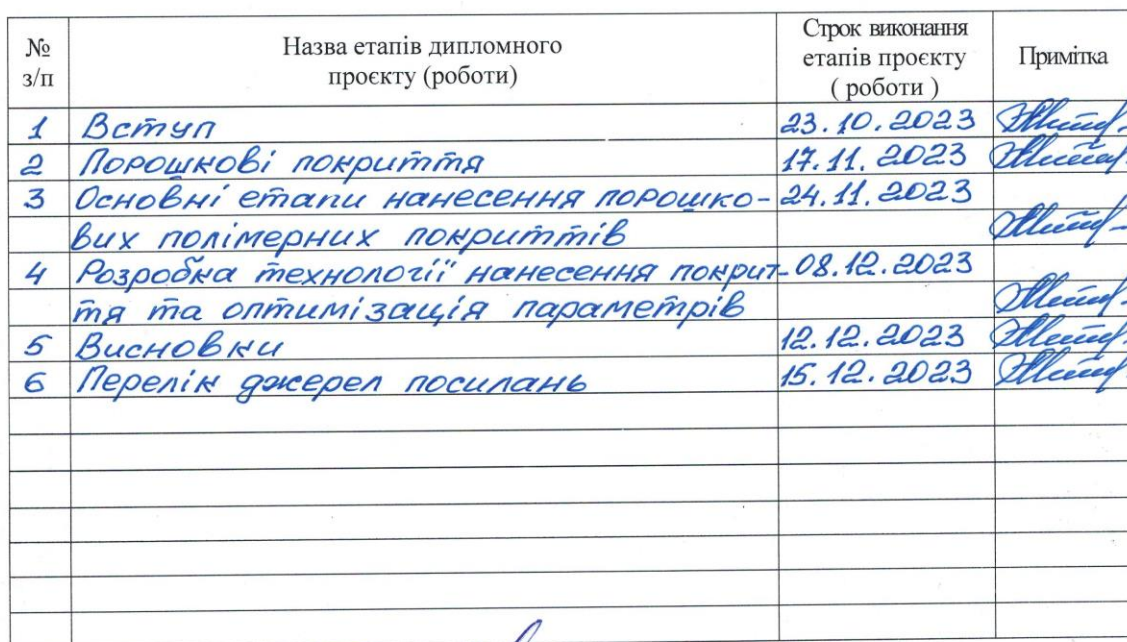 № з/п Назва етапів дипломного проєкту (роботи) Строк виконання етапів проєкту ( роботи ) Примітка
1 Вступ 23.10.2023
2 Порошкові покриття 17.11.2023
3 Основні етапи нанесення порошко- 24.11.2023
вих полімерних покриттів
4 Розробка технології нанесення покрит- 08.12.2023
тя та оптимізація параметрів
5 Висновки 12.12.2023
6 Перелік джерел посилань 15.12.2023